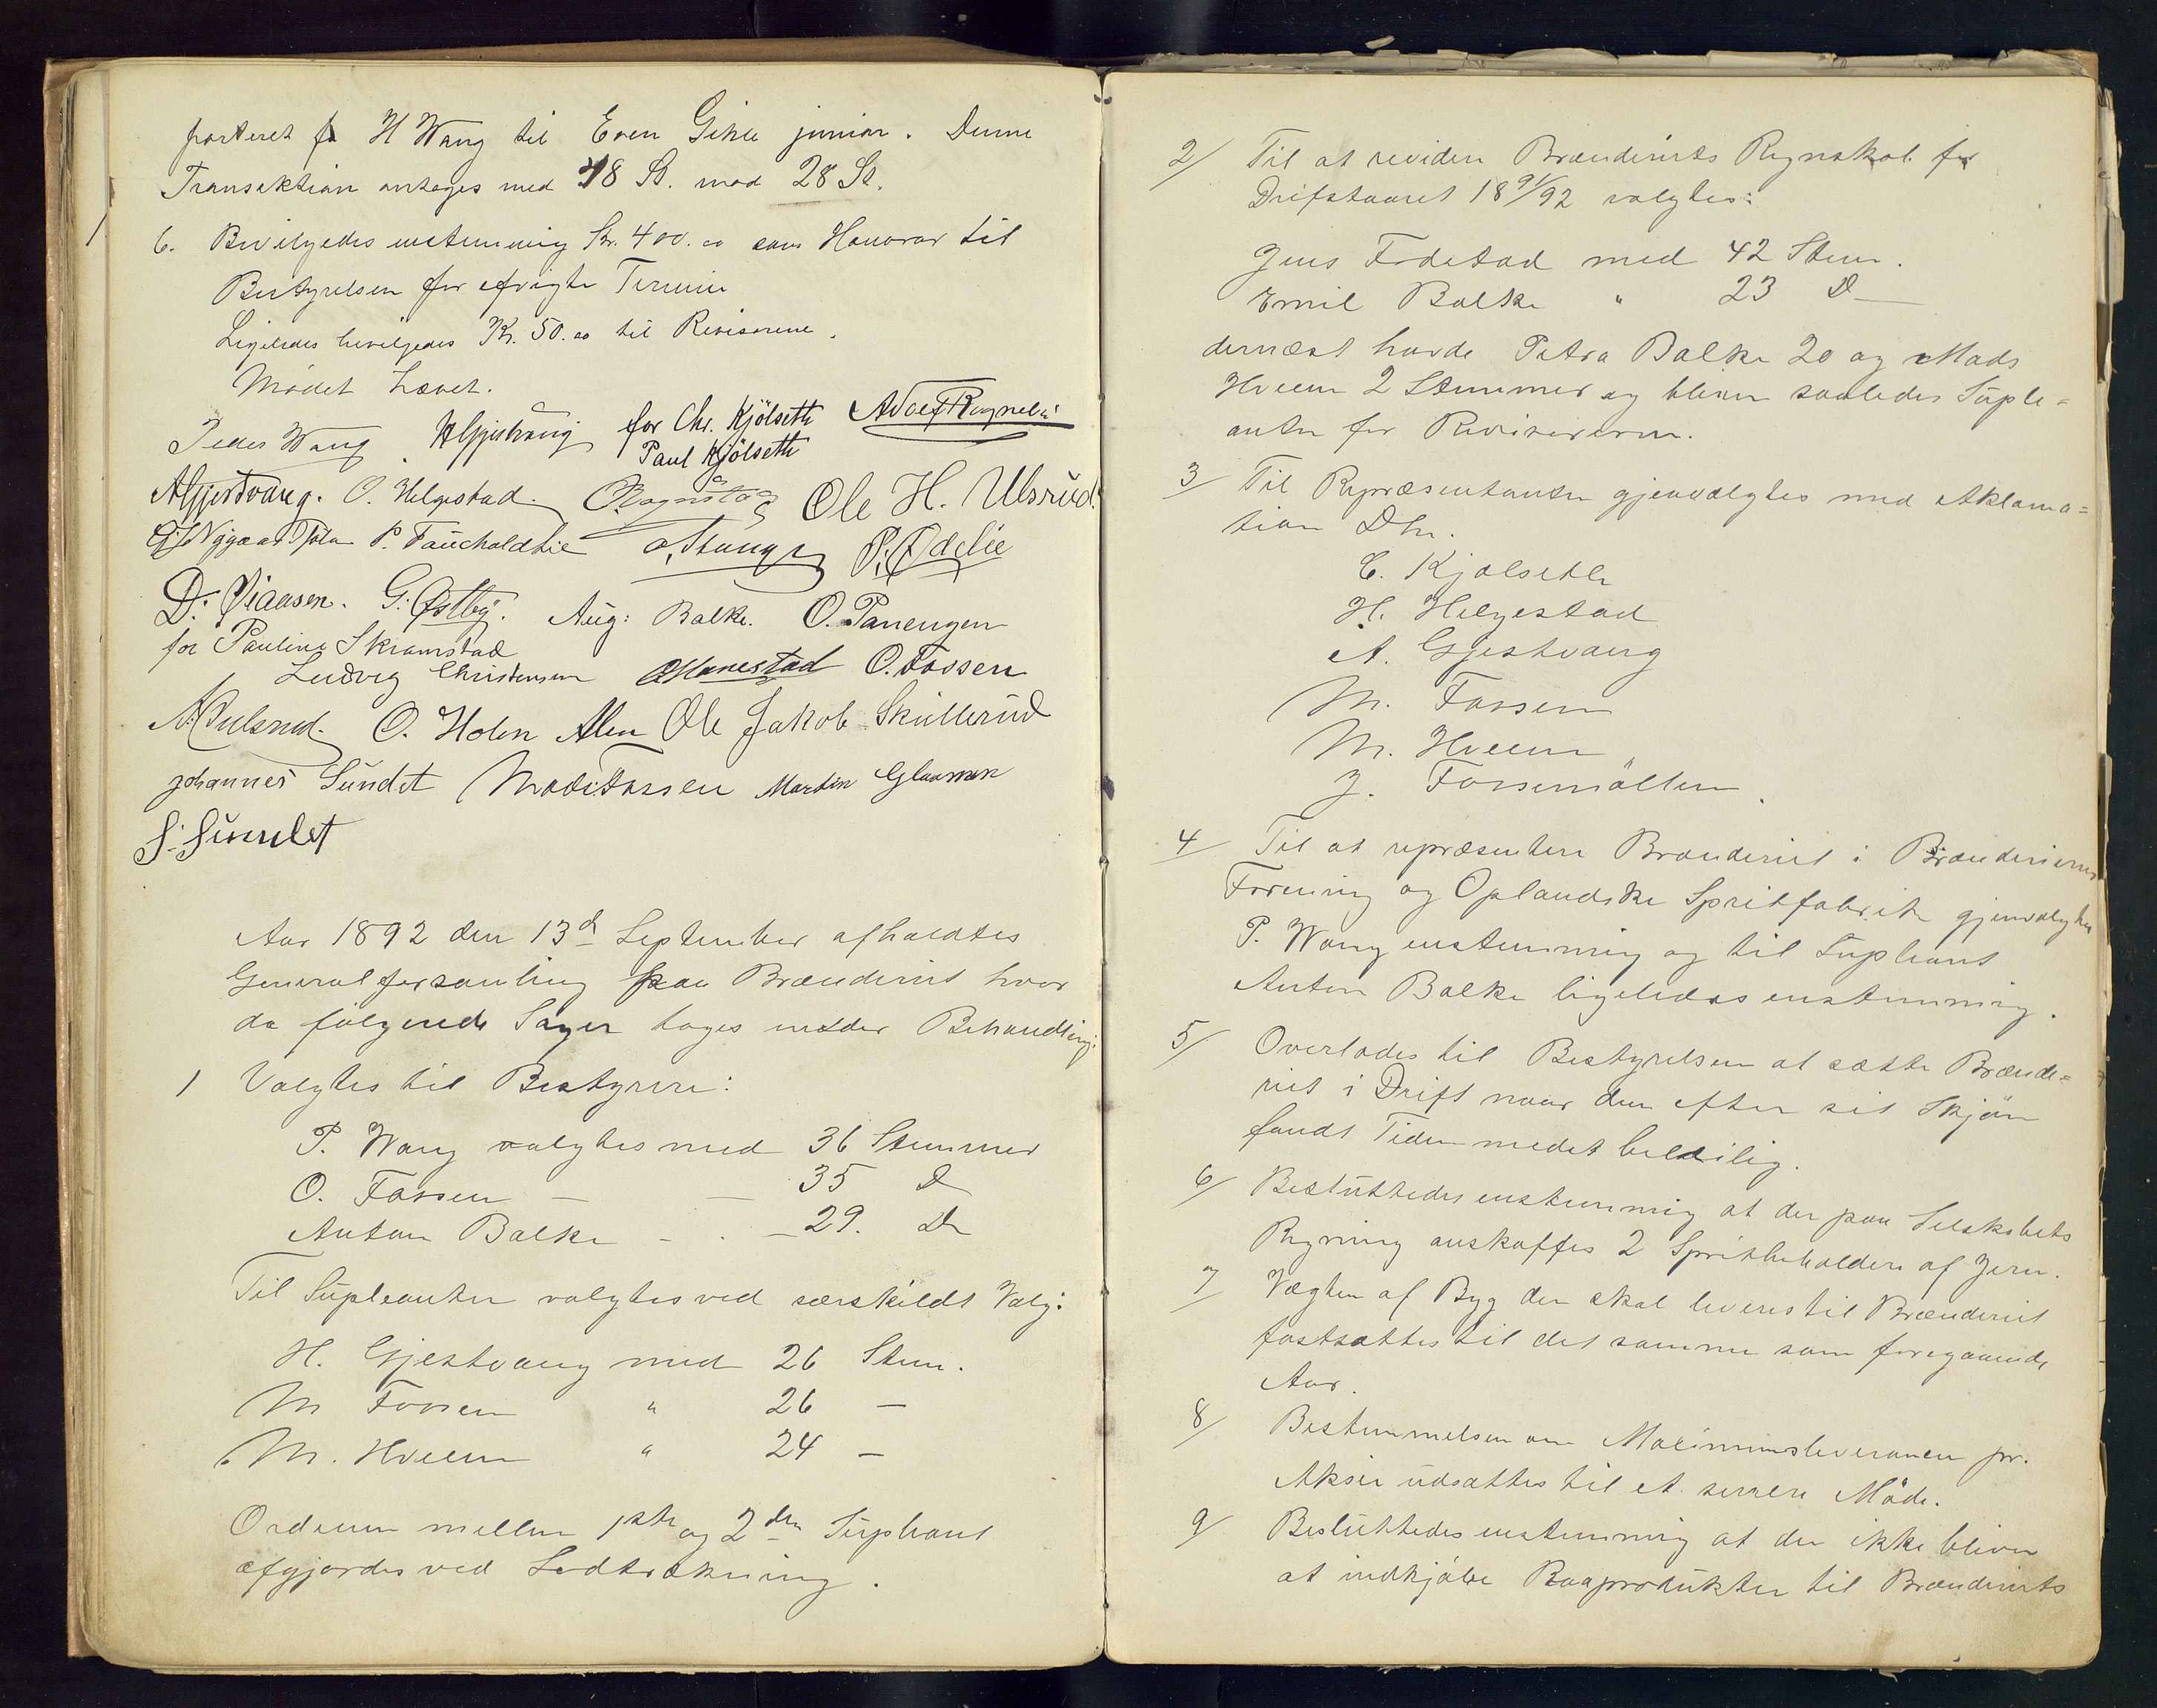 porteret fr H Wang til Even Gihle junior. Denne
Transaktion antoges med 48 St. mod 28 St.
6. Bevilgedes enstemmig Kr. 400.00 som Honorar til
Bestyrelsen for afvigte Termin
Ligeledes bevilgedes Kr. 50.00 til Revisorene.
Mødet hævet.
Peder Wang HGjestvang for Chr. Kjölseth Adolf Rognelie
Paul Kjölseth
AGjestvang. O. Helgestad. O. Rognstad Ole H. Ulsrud.
P. Faucholdtlie O. Stange P. Ødelie
D. Østby. Aug: Balke. O. Panengen
for Pauline Skramstad
Ludvig Christensen OManestad O. Fossen
O. Holen Alm Ole Jakob Skullerud
Johannes Sundet Mads Fossen Martin Glaamen
S. Sundet
Aar 1892 den 13d September afholdtes
Generalforsamling paa Brænderiet hvor
da følgende Sager toges under Behandling:
1 Valgtes til Bestyrere:
P. Wang valgtes med 36 Stemmer
O. Fossen — — 35 D
Anton Balke - - — 29. Do
Til Supleanter valgtes ved særskildt Valg:
H. Gjestvang med 26 Stem.
M Fossen " 26 —
M. Hveem " 24 —
Ordenen mellem 1ste og 2den Supleant
afgjordes ved Lodtrækning.
2/ Til at revidere Brænderiets Regnskab for
Driftsaaret 1891/92 valgtes:
Jens Fodstad med 42 Stem.
Emil Balke " 23 D—
dernæst havde Petra Balke 20 og Mads
Hveem 2 Stemmer og bliver saaledes Suple=
anter for Revisorerne.
3/ Til Repræsentanter gjenvalgtes med Aklama=
tion Dhr.
C. Kjølseth
H. Helgestad
A. Gjestvang
M. Fossen
M. Hveem
J. Fossemöllen.
4/ Til at repræsentere Brænderiet i Brænderiernes
Forening og Oplandske Spritfabrik gjenvalgtes
P. Wang enstemmig og til Supleant
Anton Balke ligeledes enstemmig.
5/ Overlodes til Bestyrelsen at sætte Brænde=
riet i Drift naar den efter sit Skjön
fandt Tiden medet beleilig.
6/ Besluttedes enstemmig at der paa Selskabets
Regning anskaffes 2 Spritbeholdere af Jern.
7/ Vægten af Byg der skal leveres til Brænderiet
fastsattes til det samme som foregaaende
Aar.
8/ Bestemmelsen om Maximumsleverancen pr.
Aksie udsattes til et senere Möde.
9/ Besluttedes enstemmig at der ikke bliver
at indkjöbe Raaprodukter til Brænderiets